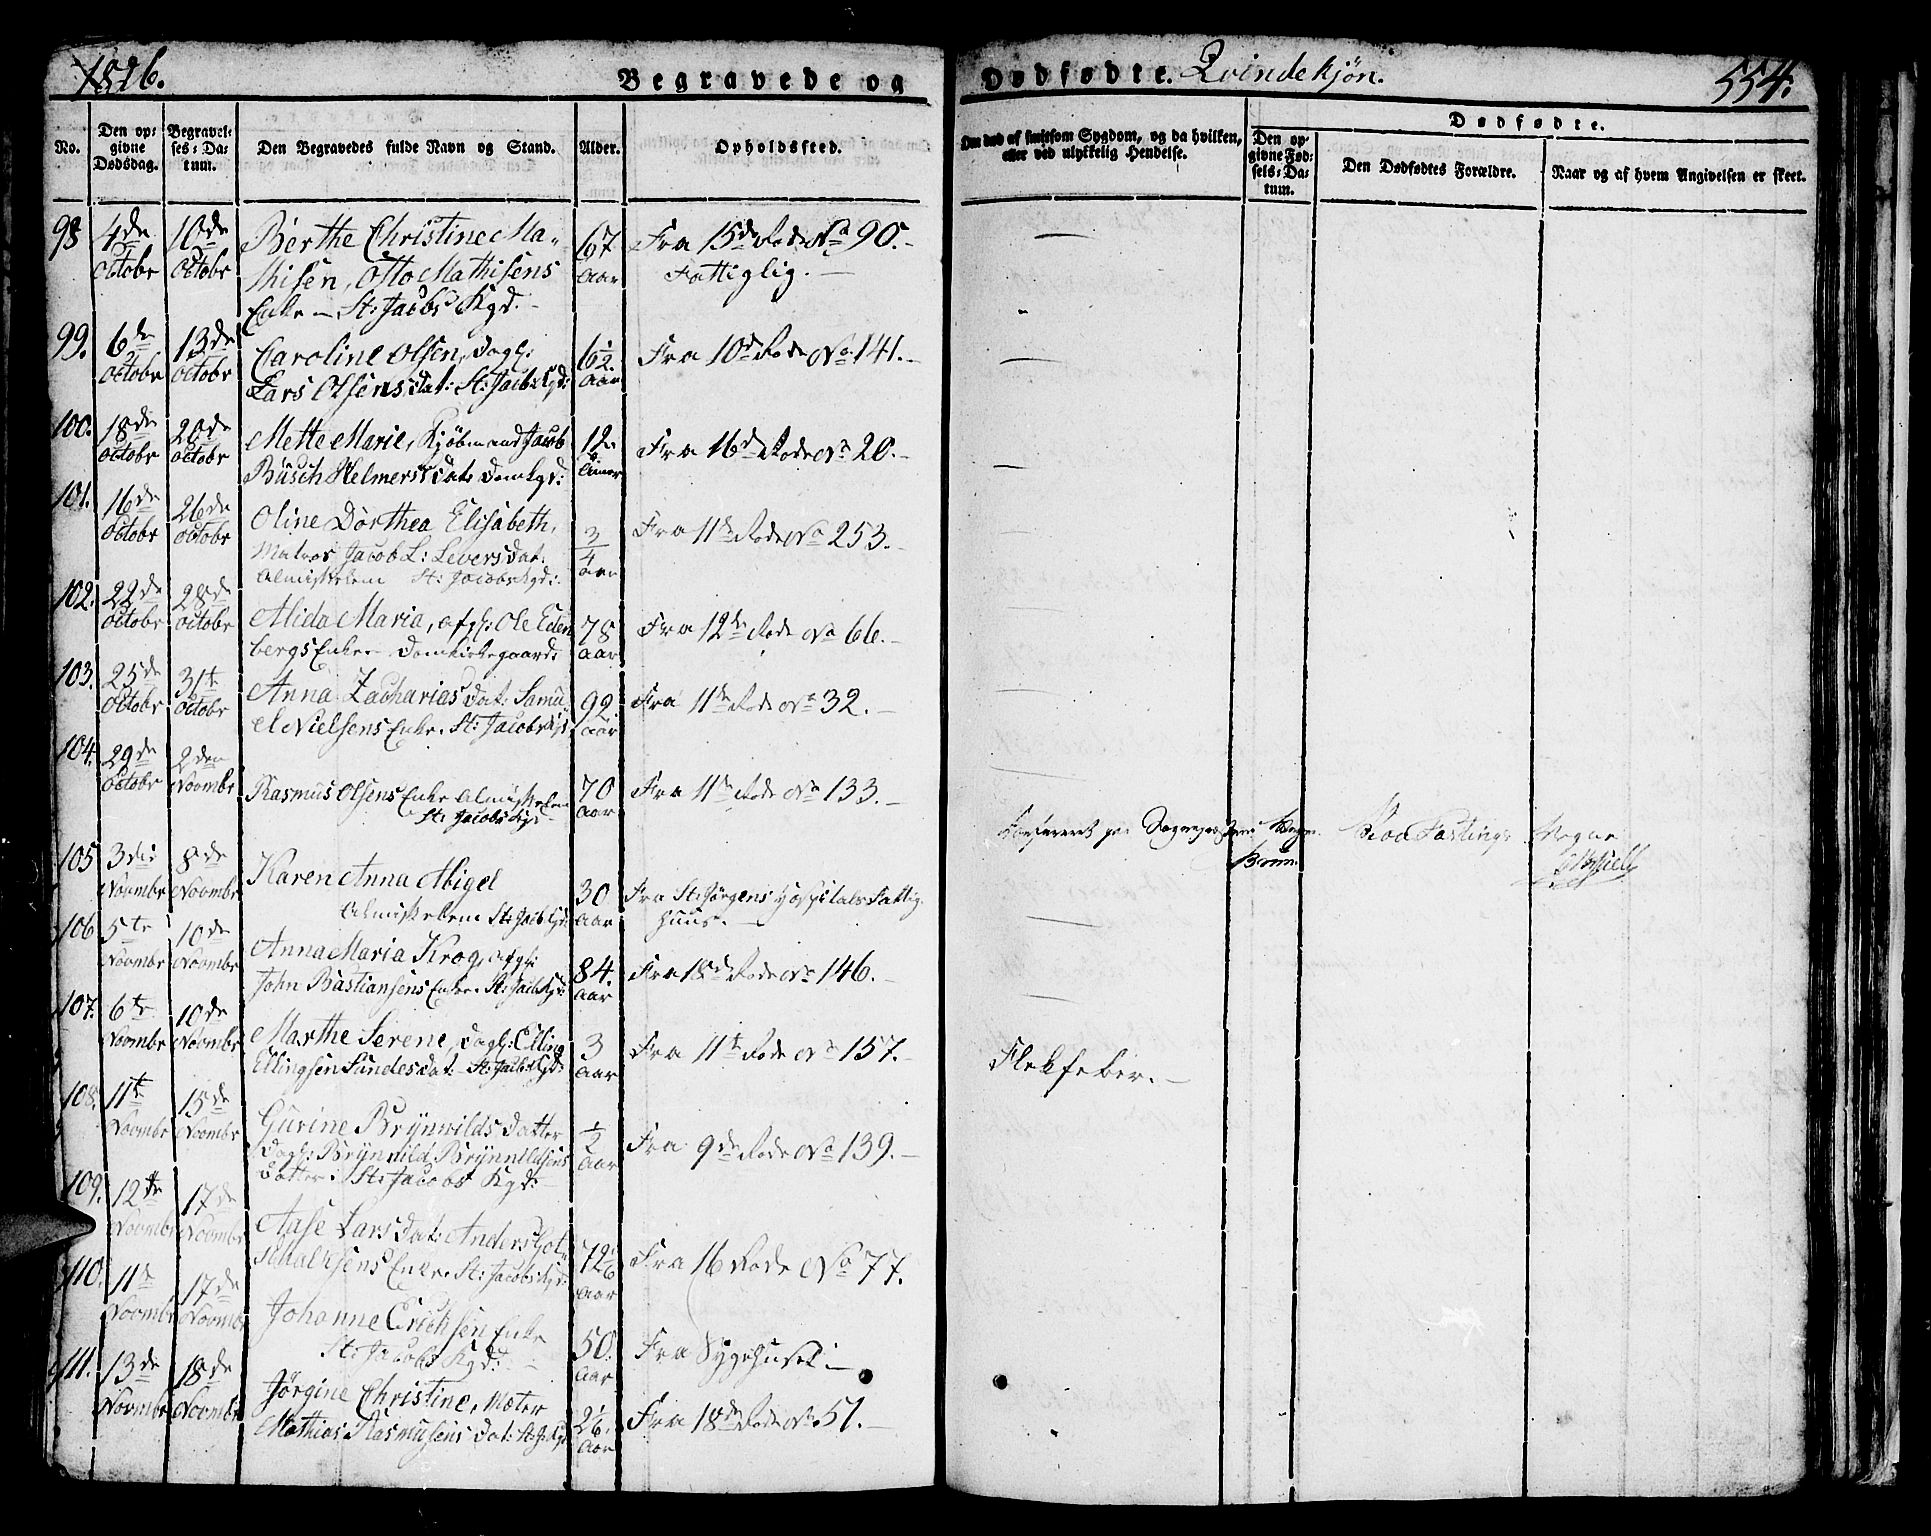 1826.
Begravede og Dødfødte. Qvindekjøn.
554.
No.
Den opgivne Dødsdag.
Begravelses-Datum.
Den Begravedes fulde Navn og Stand.
Alder.
Opholdssted.
Om død af smitsom Sygdom, og da hvilken,
eller ved ulykkelig Hendelse.
Dødfødte.
Den opgivne Fødsels-Datum.
Den Dødfødtes Forældre.
Naar og af hvem Angivelsen er skeet.
98 4de October 10de October
Berthe Christine Ma-
thisen, Otto Mathisens
Enke – St: Jacobs Kgd:
67 Aar
Fra 15de Rode No 90. –
Fattiglig. –
99. 6de October 13de October
Caroline Olsen, Dagl:
Lars Olsens Dat: St: Jacobs Kgd:
6½ Aar
Fra 10de Rode No 141. –
100. 18de October 20de October
Mette Marie, Kjøbmand Jacob
Büsch Helmers Dat: Domkgd:
12
Fra 16de Rode No 20. –
101. 16de October 26de October
Oline Dorthea Elisabeth,
Matros Jacob L: Levers Dat:
Almisselem St: Jacobs Kgd:
3/4 Aar
Fra 11te Rode No 253. –
102. 22de October 28de October
Alida Maria, afgl: Ole Eden
bergs Enke – Domkirkegaard:
78 Aar
Fra 12de Rode No 66. –
103. 25de October 31te October
Anna Zacharias Dat: Samu
el Nielsens Enke. St: Jacobs Kgd:
92 Aar
Fra 11te Rode No 32. –
104. 29de October 2den Novembr
Rasmus Olsens Enke Almisselem
St: Jacobs Kgd:
70 Aar
Fra 11te Rode No 133. –
105 3die Novembr 8de Novembr
Karen Anna Abigel
Almisselem St: Jacobs Kgd:
30 Aar
Fra St: Jørgens Hospitals Fattig
huus. –
106 5te Novembr 10de Novembr
Anna Maria Krog, afgl:
John Bastiansens Enke. St: Jacobs Kgd:
84. Aar
Fra 18de Rode No 146. –
107. 6te Novembr 10de Novembr
Marthe Serene, Dagl: Elling
Ellingsen Sundes Dat: St: Jacobs Kgd:
3 Aar
Fra 11te Rode No 157. –
Flekfeber. –
108. 11te Novembr 15de Novembr
Gurine Brynnilds Datter
Dagl: Brynnild Brynnildsens
Datter: St: Jacobs Kgd: –
½ Aar
Fra 9de Rode No 139. –
109. 12te Novembr 17de Novembr
Aase Lars Dat: Anders Got-
Enke. St: Jacobs Kgd:
72 Aar
Fra 16 Rode No 77.
110. 11te Novembr 17de Novembr
Johanne Erichsen Enke
St: Jacobs Kgd:
50. Aar
Fra Sygehuset: –
111. 13de Novembr 18de Novembr
Jørgine Christine,
Mathias Rasmusens Dat: St: J: Kgd:
2 Aar
Fra 18de Rode No 51. –